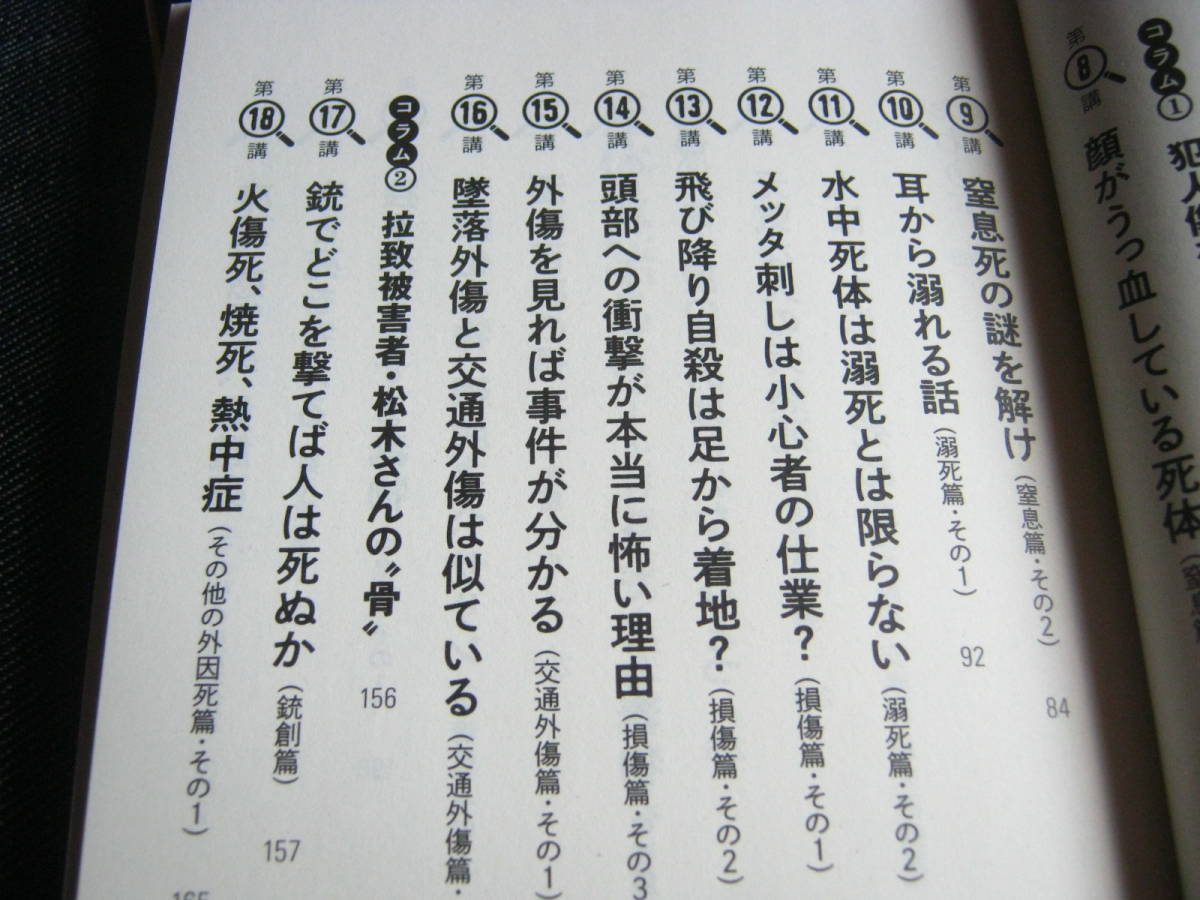 コラム① 犯人
第8講 顔がうっ血している死体
第9講 窒息死の謎を解け(窒息篇・その2) 84
第10講 耳から溺れる話(溺死篇・その1) 92
第11講 水中死体は溺死とは限らない(溺死篇・その2)
第12講 メッタ刺しは小心者の仕業?(損傷篇・その1)
第13講 飛び降り自殺は足から着地?(損傷篇・その2)
第14講 頭部への衝撃が本当に怖い理由(損傷篇・その3
第15講 外傷を見れば事件が分かる(交通外傷篇・その1)
第16講 墜落外傷と交通外傷は似ている(交通外傷篇・
コラム② 拉致被害者・松木さんの〝骨〟 156
第17講 銃でどこを撃てば人は死ぬか(銃創篇) 157
第18講 火傷死、焼死、熱中症(その他の外因死篇・その1) 165